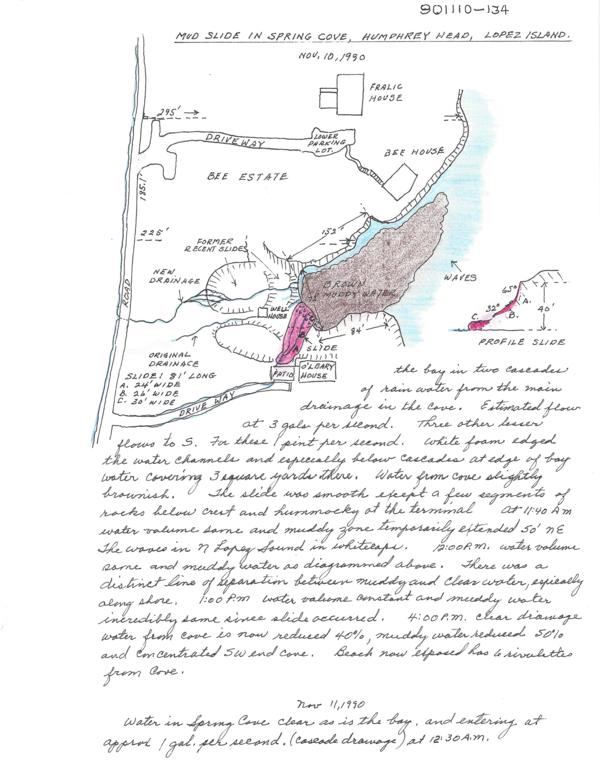 901110-134
MUD SLIDE IN SPRING COVE, HUMPHREY HEAD, LOPEZ ISLAND.
NOV. 10, 1990
FRALIC
HOUSE
295'
DRIVEWAY
LOWER
PARKING
LOT.
BEE HOUSE
BEE ESTATE
185.1'
225'
152'
FORMER
RECENT SLIDES
NEW
DRAINAGE
ROAD
WELL
HOUSE
BROWN
MUDDY WATER
WAVES
65°
32°
A.
B.
C.
40'
PROFILE SLIDE
84'
SLIDE
ORIGINAL
DRAINAGE
PATIO
O'LEARY
HOUSE
SLIDE: 81' LONG
A. 24' WIDE
B. 26' WIDE
C. 30' WIDE
DRIVE WAY
the bay in two cascades
of rain water from the main
drainage in the cove. Estimated flow
at 3 gals per second. Three other lesser
flows to S. For these 1 pint per second. White foam edged
the water channels and especially below cascades at edge of bay
water covering 3 square yards there. Water from cove slightly
brownish. The slide was smooth except a few segments of
rocks below crest and hummocky at the terminal At 11:40 AM
water volume same and muddy zone temporarily extended 50' NE
The waves in N Lopez Sound in whitecaps. 12:00 P.M. water volume
same and muddy water as diagrammed above. There was a
distinct line of separation between muddy and clear water, espically
along shore. 1:00 P.M water volume constant and muddy water
incredibly same since slide occurred. 4:00 P.M. clear drainage
water from cove is now reduced 40%, muddy water reduced 50%
and concentrated SW end cove. Beach now exposed has 6 rivulets
from Cove.
Nov 11, 1990
Water in Spring Cove clear as is the bay, and entering at
approx 1 gal. per second. (cascade drainage) at 12:30 A.M.